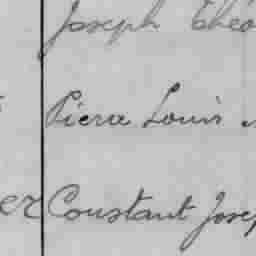 Joseph Théo
Pierre Louis
er Constant Josep